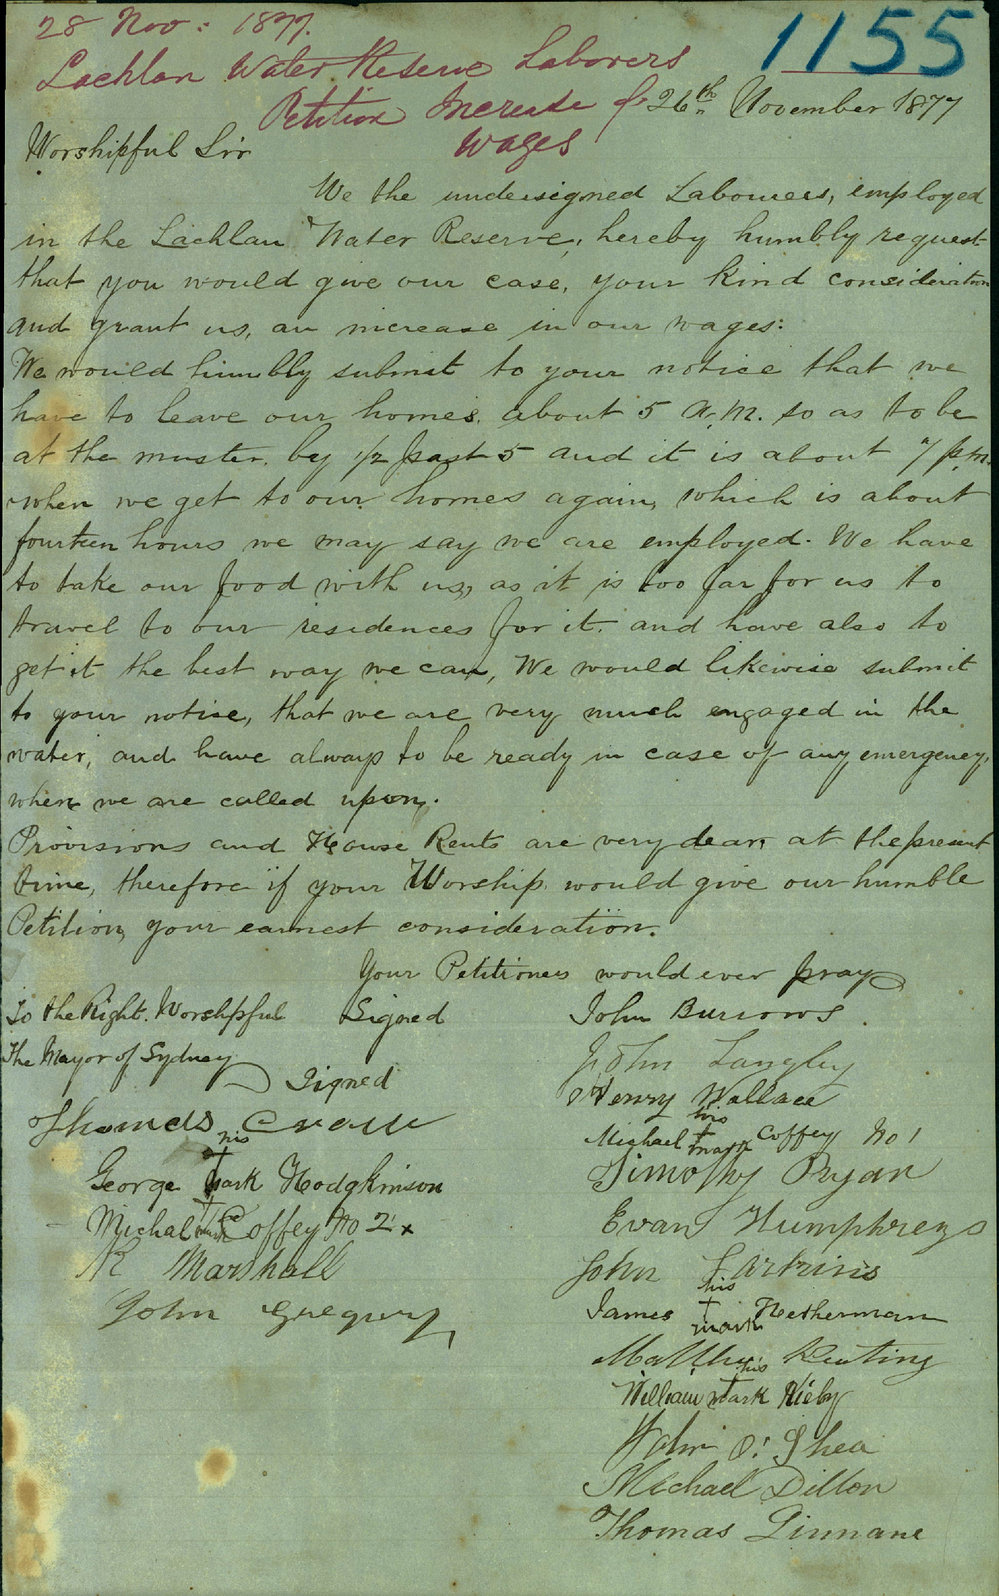 28 Nov: 1877.
1155
Lachlan Water Reserve Laborers
Petition Increase of
Wages
26th November 1877
Worshipful Sir
We the undersigned Labourers, employed
in the Lachlan Water Reserve, hereby humbly request
that you would give our case, your kind consideration
and grant us, an increase in our wages:
We would humbly submit to your notice that we
have to leave our homes about 5 A.M. so as to be
at the muster by 1/2 past 5 and it is about 7 p.m.
when we get to our homes again, which is about
fourteen hours we may say we are employed. We have
to take our food with us, as it is too far for us to
travel to our residences for it. and have also to
get it the best way we can, We would likewise submit
to your notise, that we are very much engaged in the
water, and have always to be ready in case of any emergency,
when we are called upon.
Provisions and House Rents are very dear at the present
time, therefore if your Worship would give our humble
Petition, your earnest consideration.
Your Petitioners would ever pray
To the Right. Worshipful Signed John Burrows.
The Mayor of Sydney
John Langley
Signed
Henry Wallace
Thomas Crow
his
Michael + Coffey No 1
mark
his
George + mark Hodgkinson
Timothy Ryan
Michal + mark Coffey No 2 x
Evan Humphreys
R Marshall
John Larkins
his
James + Hetherman
mark
John Gregory
Matthew Keating
his
William mark Rieby
John O'Shea
Michael Dillon
Thomas Linnane